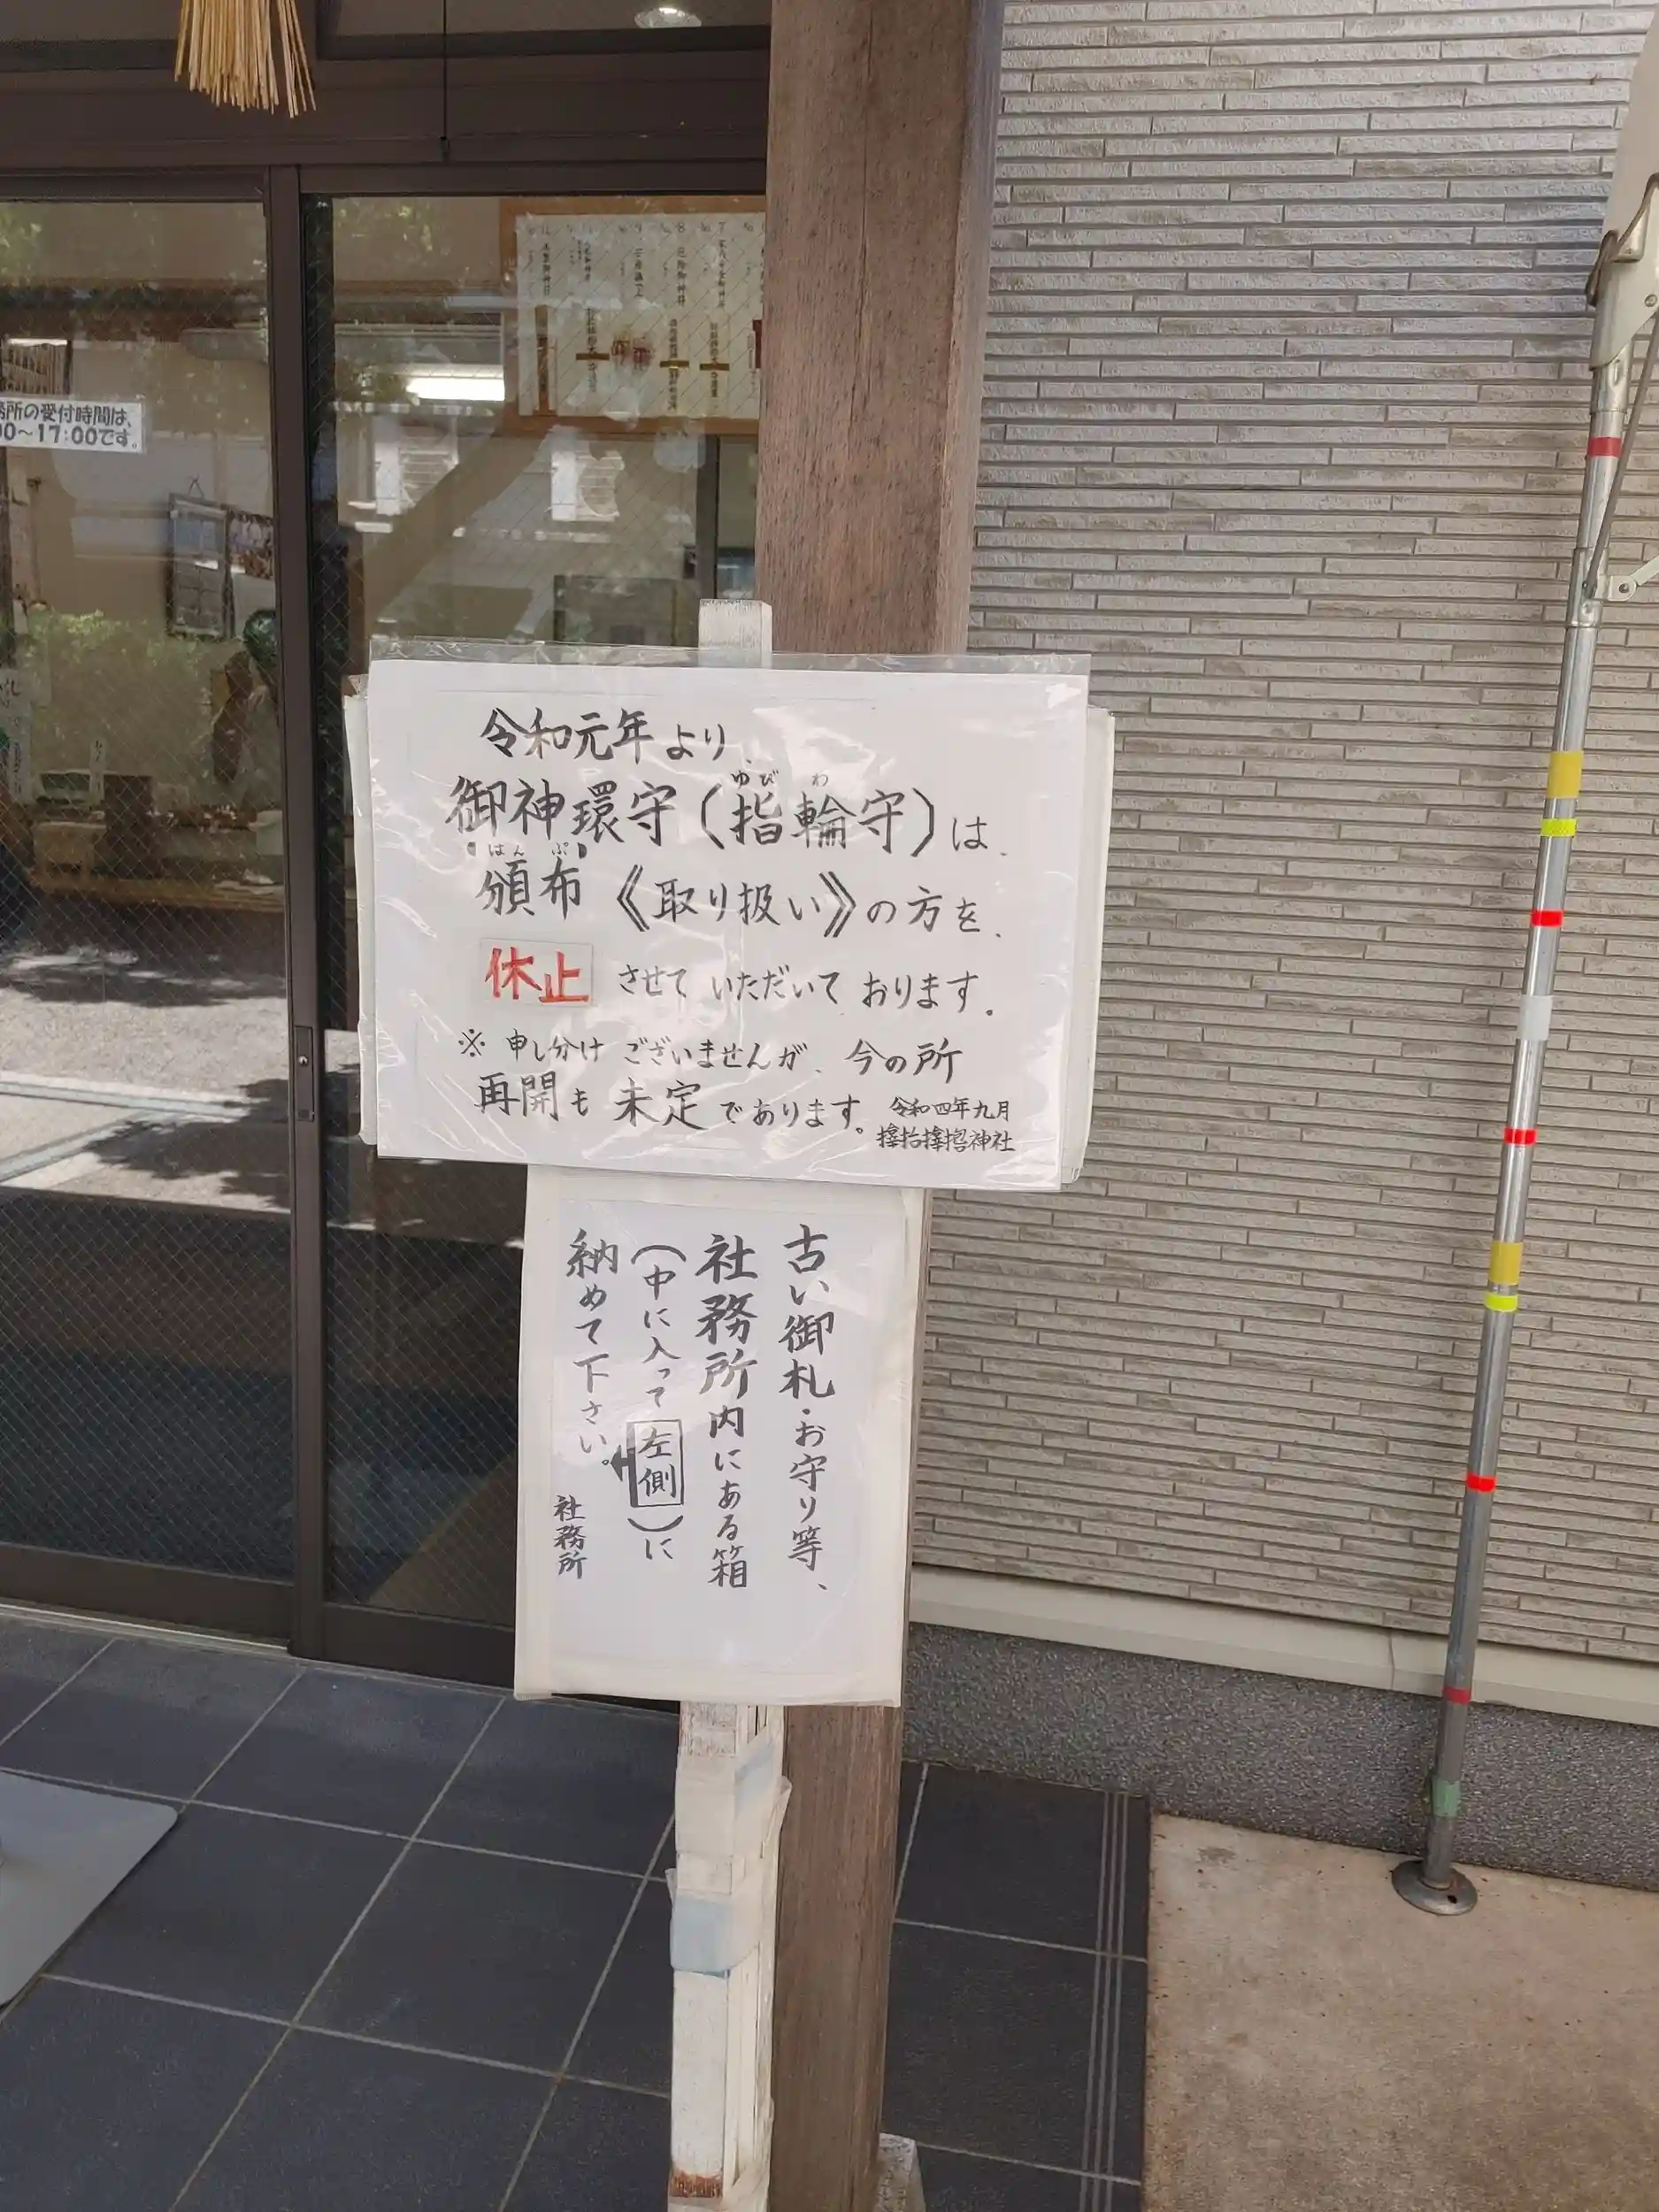 務所の受付時間は、
00～17:00です。
令和元年より、
御神環守(指輪守)は、
ゆびわ
頒布《取り扱い》の方を、
はんぷ
休止させていただいております。
※申し分けございませんが、今の所
再開も未定であります。
令和四年九月
神社
古い御札・お守り等、
社務所内にある箱
(中に入って左側)に
納めて下さい。
社務所